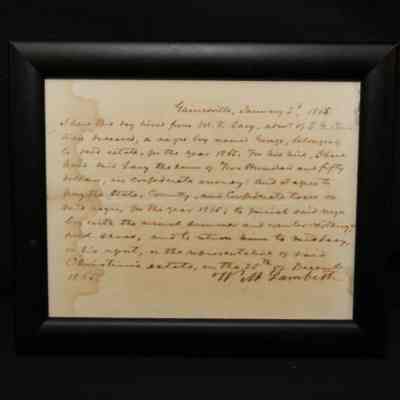 Gainesville, January 2d, 1865
I have this day hired from M. E. Lacy, admr of J. G.
deceased, a negro boy named George, belonging
to said estate, for the year 1865. For his hire, I have
paid said Lacy the sum of Two Hundred and fifty
dollars, in Confederate money; and I agree to
pay the State, County, and Confederate taxes on
said negro, for the year 1865; to furnish said negro
boy with the usual summer and winter clothing
and shoes, and to return him to said Lacy,
or his agent, or the representative of said
estate, on the 25th of Decemb
1865.
W. M. Lambeth